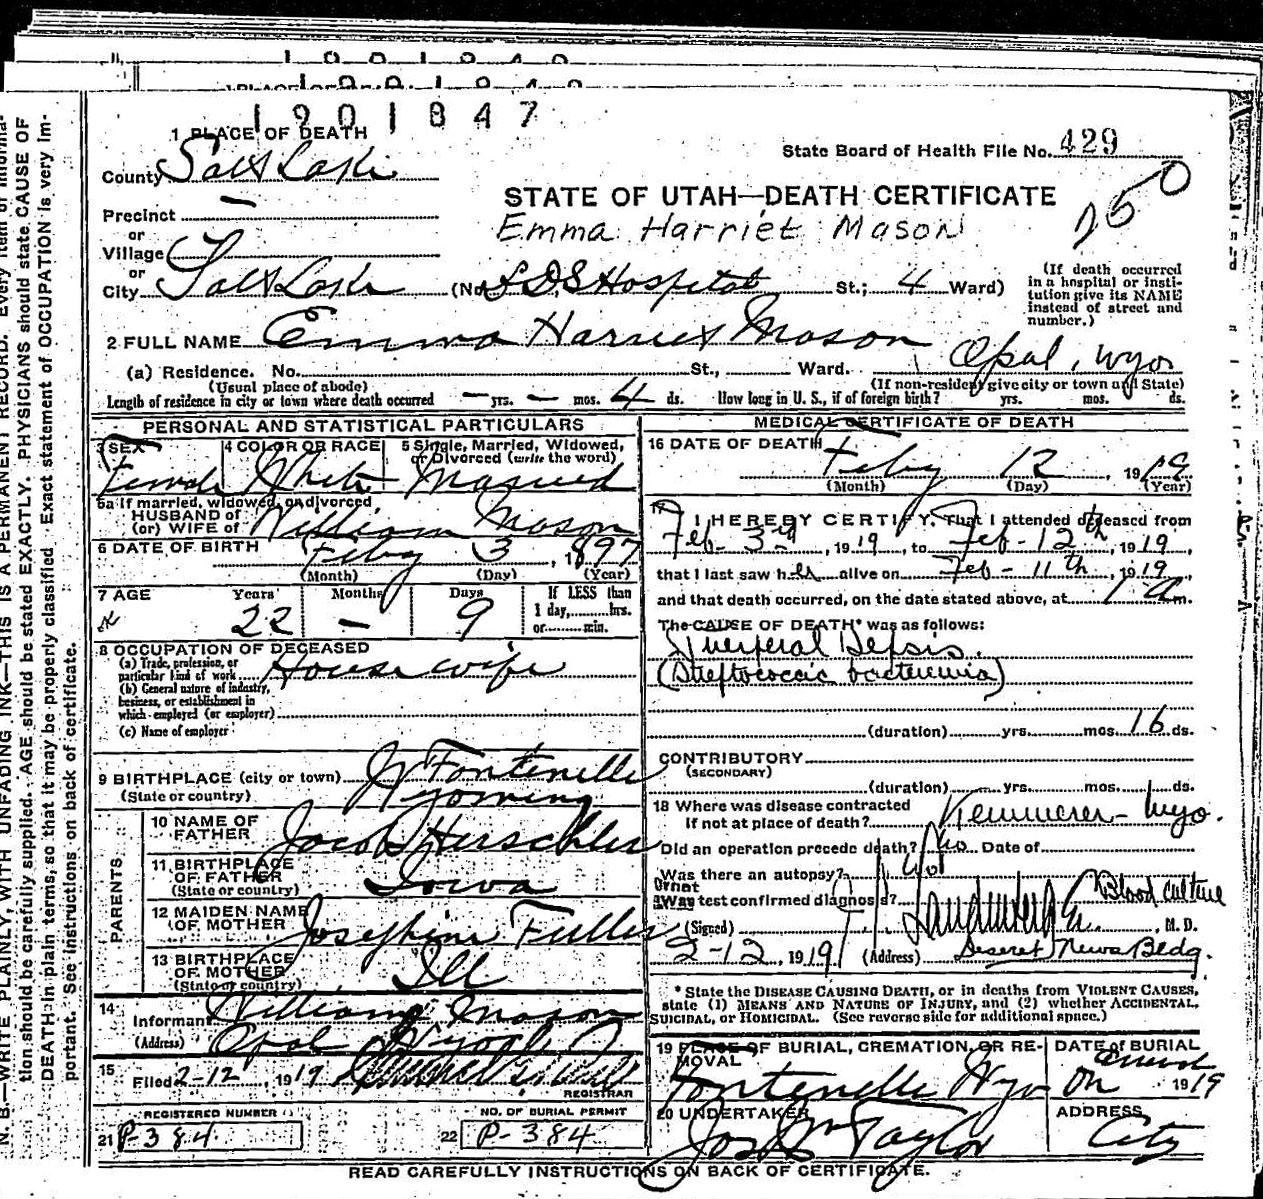 1901847
1 PLACE OF DEATH
State Board of Health File No. 429
County Salt Lake
STATE OF UTAH—DEATH CERTIFICATE
250
Precinct —
Emma Harriet Mason
or
Village
or
City Salt Lake (No. LDS Hospital St.; 4 Ward)
(If death occurred in a hospital or institution give its NAME instead of street and number.)
2 FULL NAME Emma Harriet Mason
(a) Residence. No. St., Ward. Opal, Wyo
(Usual place of abode) (If non-resident give city or town and State)
Length of residence in city or town where death occurred — yrs. — mos. 4 ds. How long in U. S., if of foreign birth? yrs. mos. ds.
PERSONAL AND STATISTICAL PARTICULARS
3 SEX Female
4 COLOR OR RACE White
5 Single, Married, Widowed, or Divorced (write the word) Married
5a If married, widowed, or divorced
HUSBAND of
(or) WIFE of William Mason
6 DATE OF BIRTH Feby 3, 1897
(Month) (Day) (Year)
7 AGE Years Months Days If LESS than
22 — 9 1 day,......hrs.
or......min.
8 OCCUPATION OF DECEASED
(a) Trade, profession, or particular kind of work House wife
(b) General nature of industry, business, or establishment in which employed (or employer)
(c) Name of employer
9 BIRTHPLACE (city or town) Fontenelle
(State or country) Wyoming
PARENTS
10 NAME OF FATHER Jacob Herschler
11 BIRTHPLACE OF FATHER (State or country) Iowa
12 MAIDEN NAME OF MOTHER Josephine Fuller
13 BIRTHPLACE OF MOTHER (State or country) Ill
14 Informant William Mason
(Address) Opal Wyo
15 Filed 2-12, 1919
REGISTRAR
REGISTERED NUMBER
21 P-384
NO. OF BURIAL PERMIT
22 P-384
MEDICAL CERTIFICATE OF DEATH
16 DATE OF DEATH Feby 12 1919
(Month) (Day) (Year)
17 I HEREBY CERTIFY, That I attended deceased from
Feb - 3rd, 1919, to Feb - 12th, 1919,
that I last saw her alive on Feb - 11th, 1919
and that death occurred, on the date stated above, at 1 a m.
The CAUSE OF DEATH* was as follows:
Puerperal Sepsis.
(Streptococcic bacteremia)
(duration) yrs. mos. 16 ds.
CONTRIBUTORY
(SECONDARY)
(duration) yrs. mos. ds.
18 Where was disease contracted
If not at place of death? Kemmerer - Wyo.
Did an operation precede death? No Date of
Was there an autopsy? No
What test confirmed diagnosis? Blood culture
(Signed) M. D.
2-12, 1919 (Address) Deseret News Bldg.
* State the DISEASE CAUSING DEATH, or in deaths from VIOLENT CAUSES,
state (1) MEANS AND NATURE OF INJURY, and (2) whether ACCIDENTAL,
SUICIDAL, or HOMICIDAL. (See reverse side for additional space.)
19 PLACE OF BURIAL, CREMATION, OR REMOVAL Fontenelle Wyo
DATE of BURIAL
On 1919
20 UNDERTAKER Jos Wm Taylor
ADDRESS City
READ CAREFULLY INSTRUCTIONS ON BACK OF CERTIFICATE.
N. B.—WRITE PLAINLY, WITH UNFADING INK—THIS IS A PERMANENT RECORD. Every item of informa-
tion should be carefully supplied. AGE should be stated EXACTLY. PHYSICIANS should state CAUSE OF
DEATH in plain terms, so that it may be properly classified. Exact statement of OCCUPATION is very im-
portant. See instructions on back of certificate.